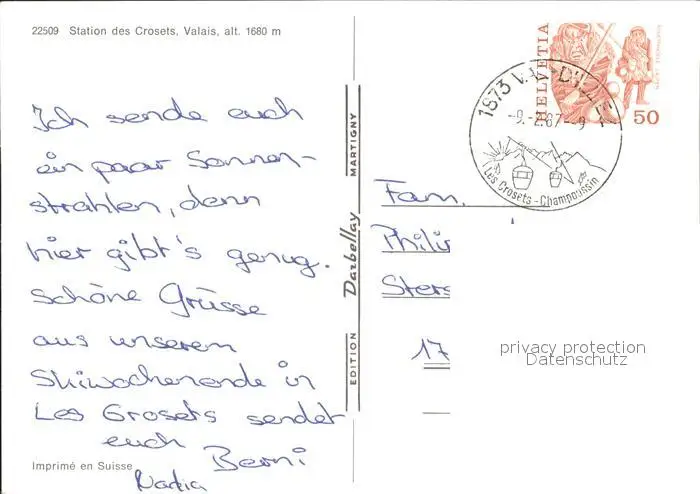 22509 Station des Crosets, Valais, alt. 1680 m
Ich sende euch
ein paar Sonnen-
strahlen, denn
hier gibt's genug.
Schöne Grüsse
aus unserem
Skiwochenende in
Les Crosets sendet
euch Berni
Nadia
Imprimé en Suisse
EDITION Darbellay MARTIGNY
HELVETIA
50
1873 VAL-D'ILLIEZ
-9.-2.87--9
Les Crosets-Champoussin
Fam.
Phili
Sters
17
privacy protection
Datenschutz